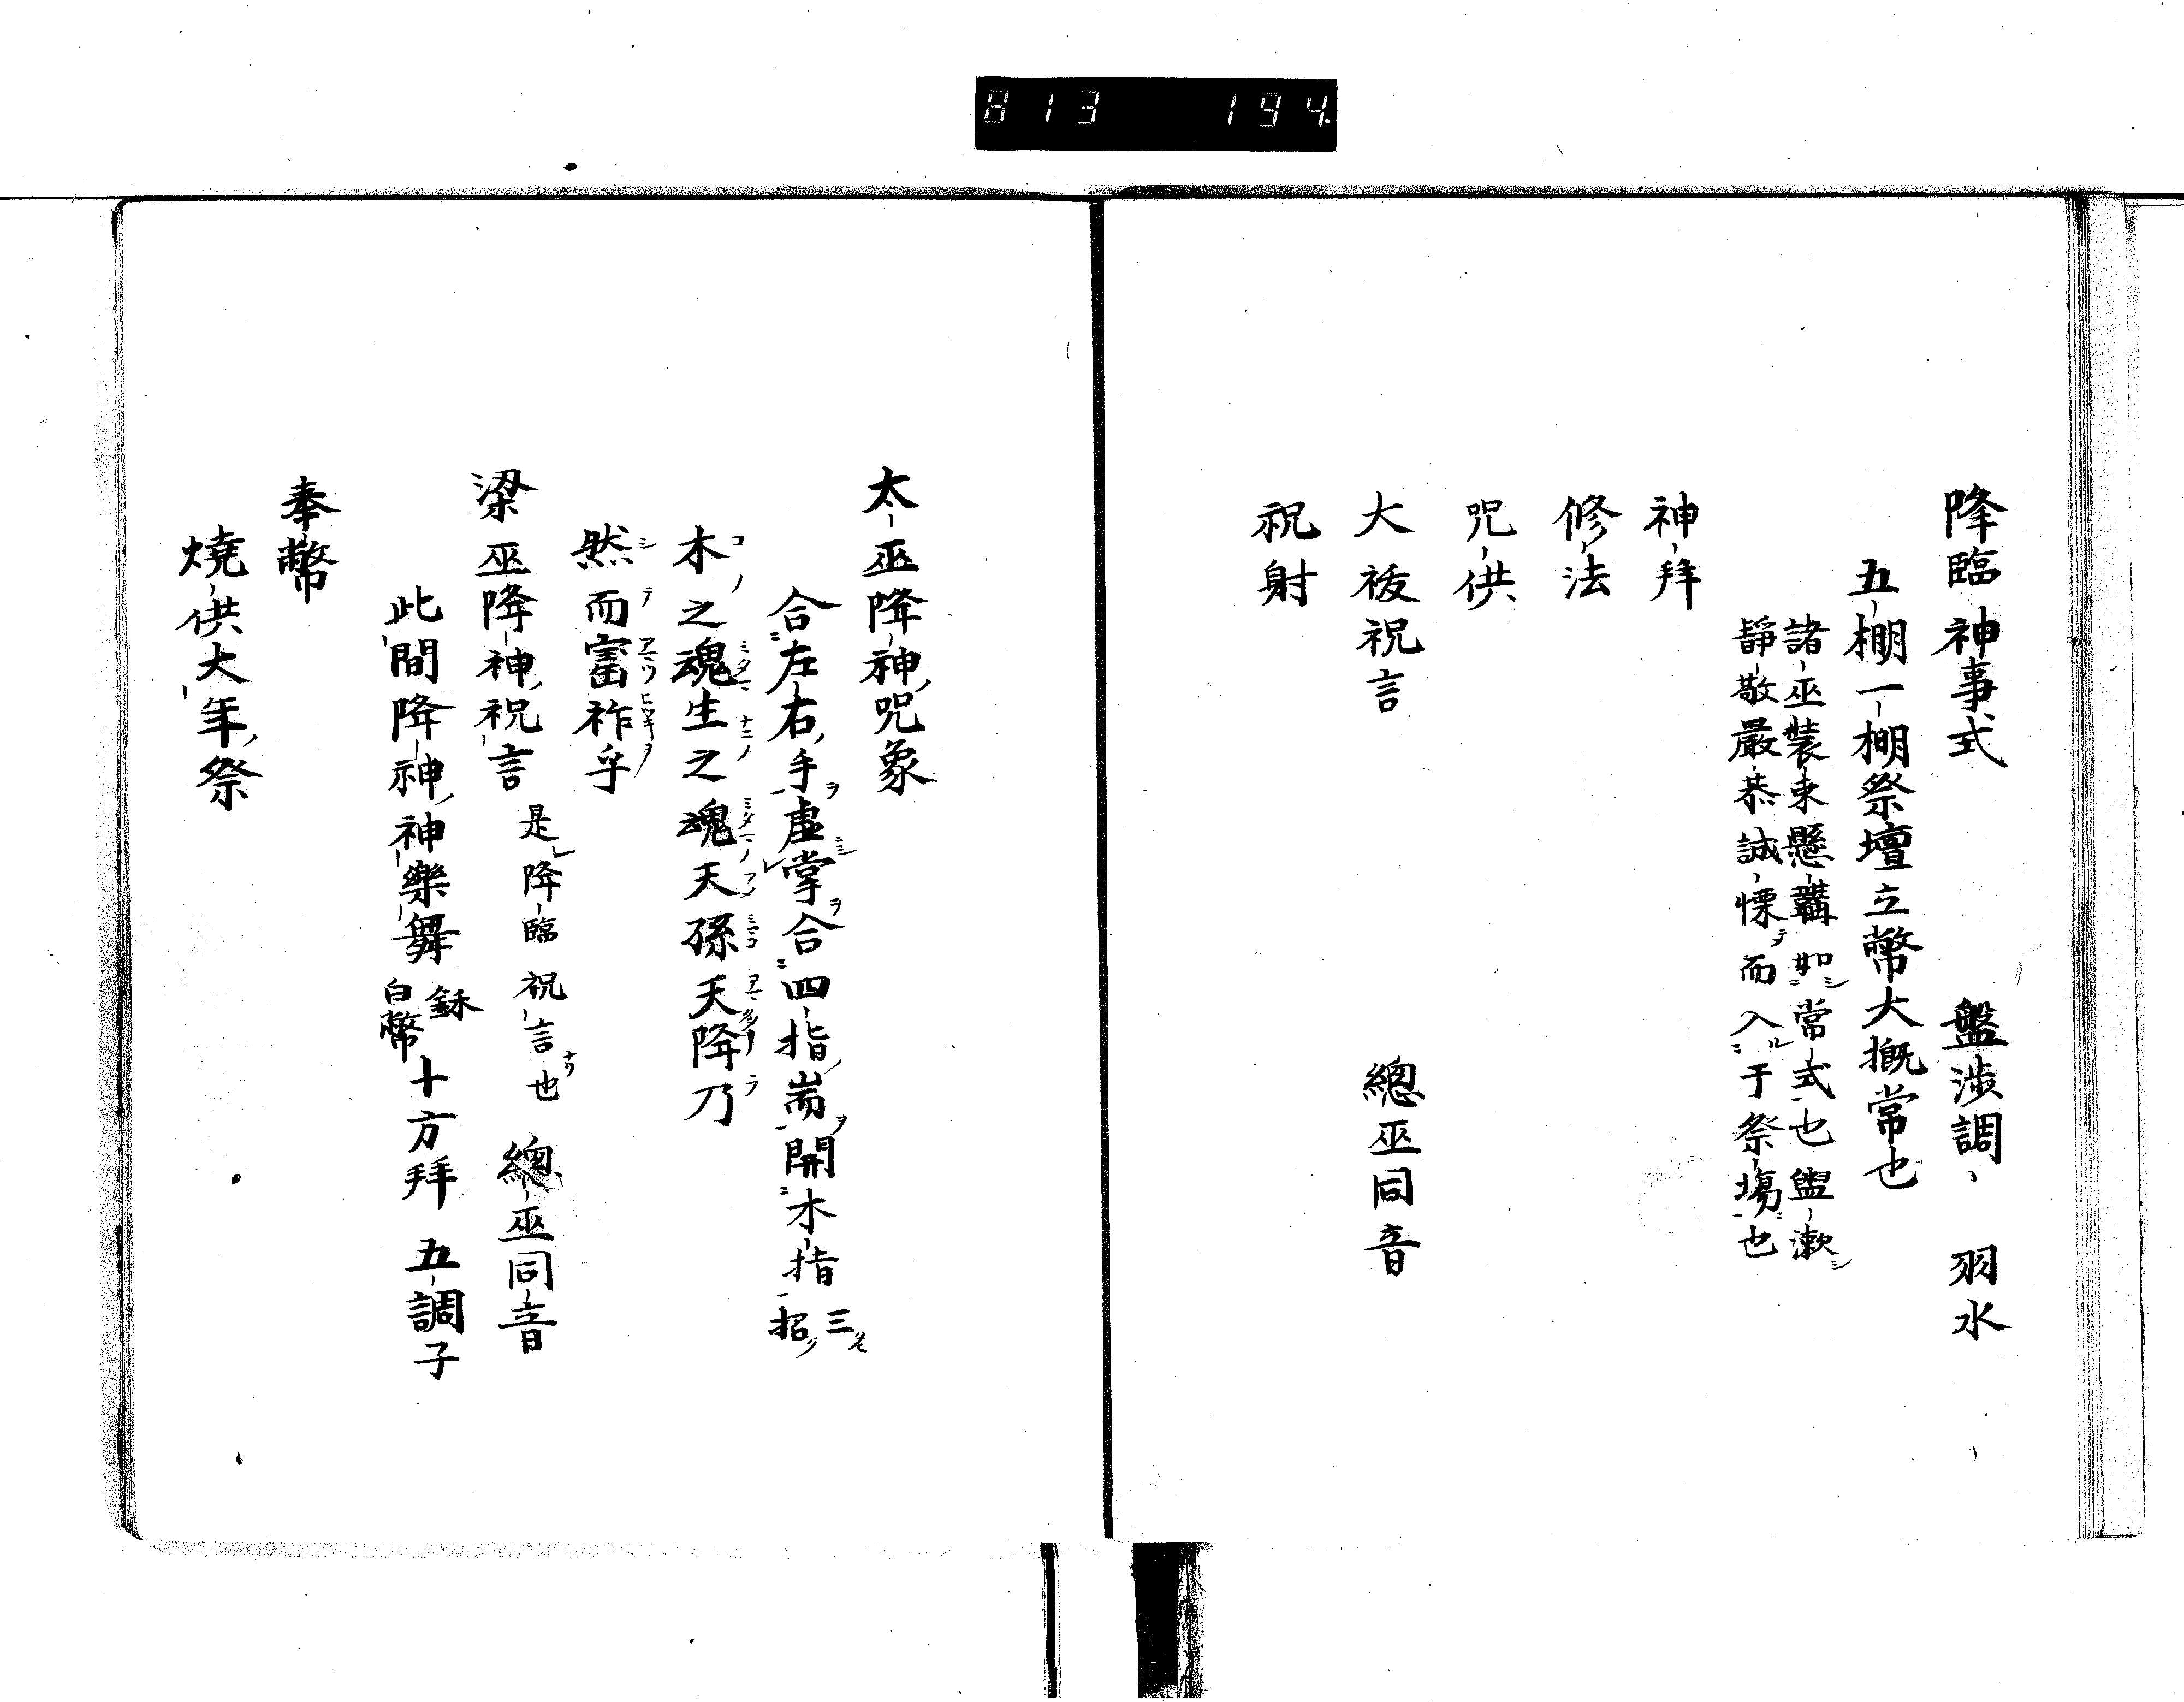 813 194
降臨神事式 盤渉調、 羽水
五棚一棚祭壇立幣大概常也
諸巫装束懸韝如常式也盥漱シ
静敬厳恭誠慄テ而入ル于祭場ニ也
神拜
修法
咒供
大祓祝言 總巫同音
祝射
太巫降神咒象
合左右手ヲ虚掌ヲ合四指耑ヲ開木指 三タヒ招ク
木之魂生之魂天孫天降乃
然而富祚乎
梁巫降神祝言 是降臨祝言也 總巫同音
此間降神神樂舞 鉌 白幣 十方拜 五調子
奉幣
燒供大年祭